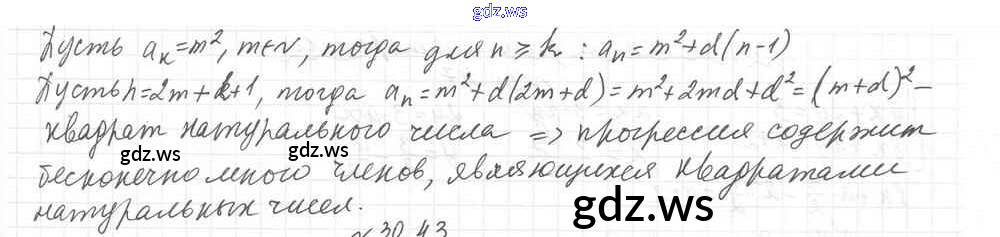 gdz.ws
Пусть aₖ=m², m∈N, тогда для n ≥ k : aₙ=m²+d(n-1)
Пусть n=2m+k+1, тогда aₙ=m²+d(2m+d)=m²+2md+d²=(m+d)² –
квадрат натурального числа => прогрессия содержит
gdz.ws gdz.ws
бесконечно много членов, являющихся квадратами
натуральных чисел.
gdz.ws
№ 30.43